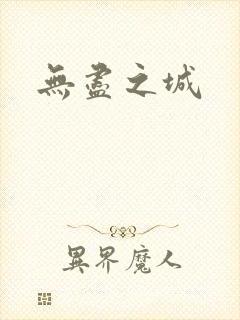 無盡之城
異界魔人